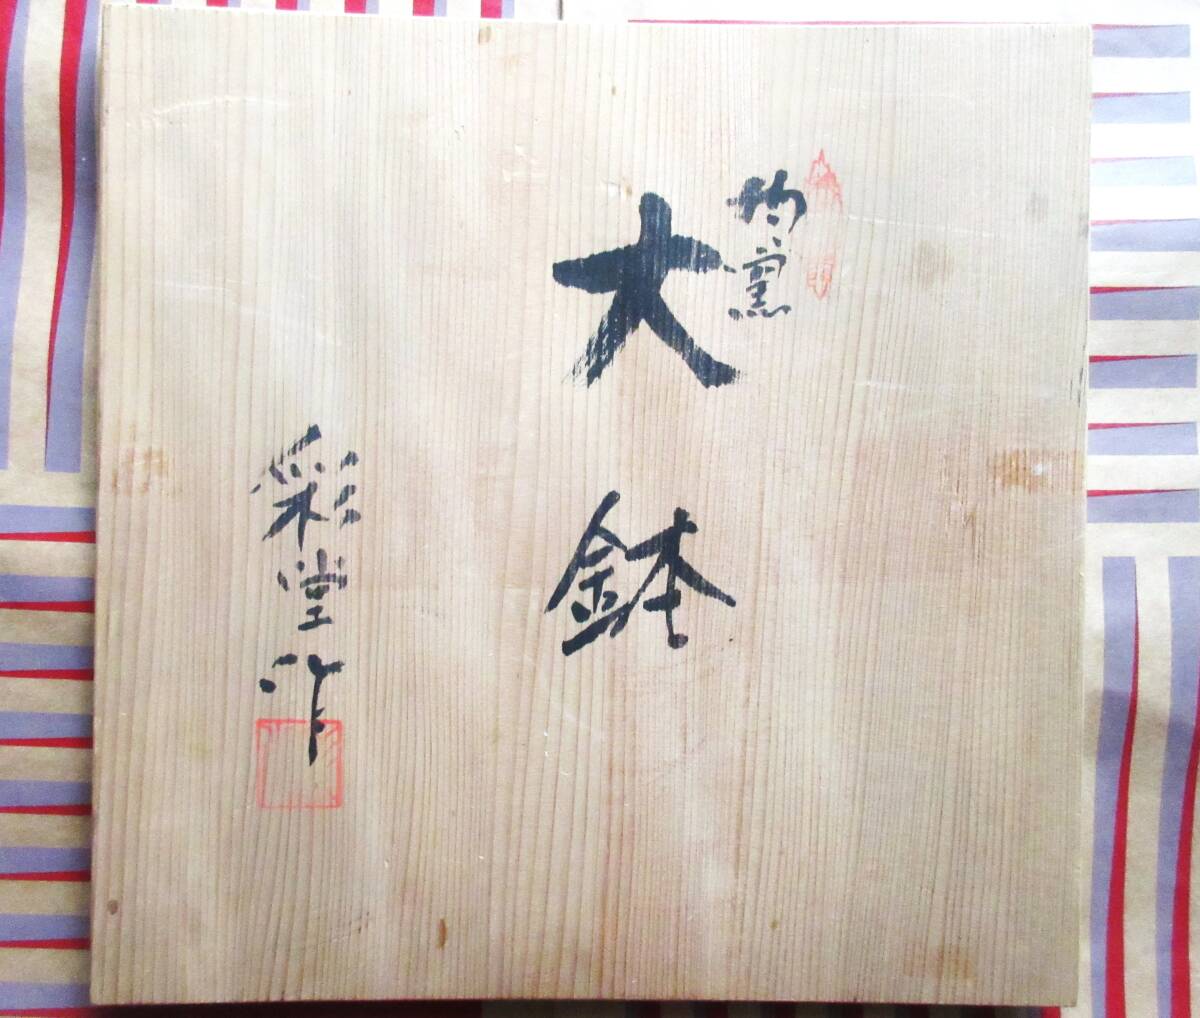 均窯
大鉢
彩堂作